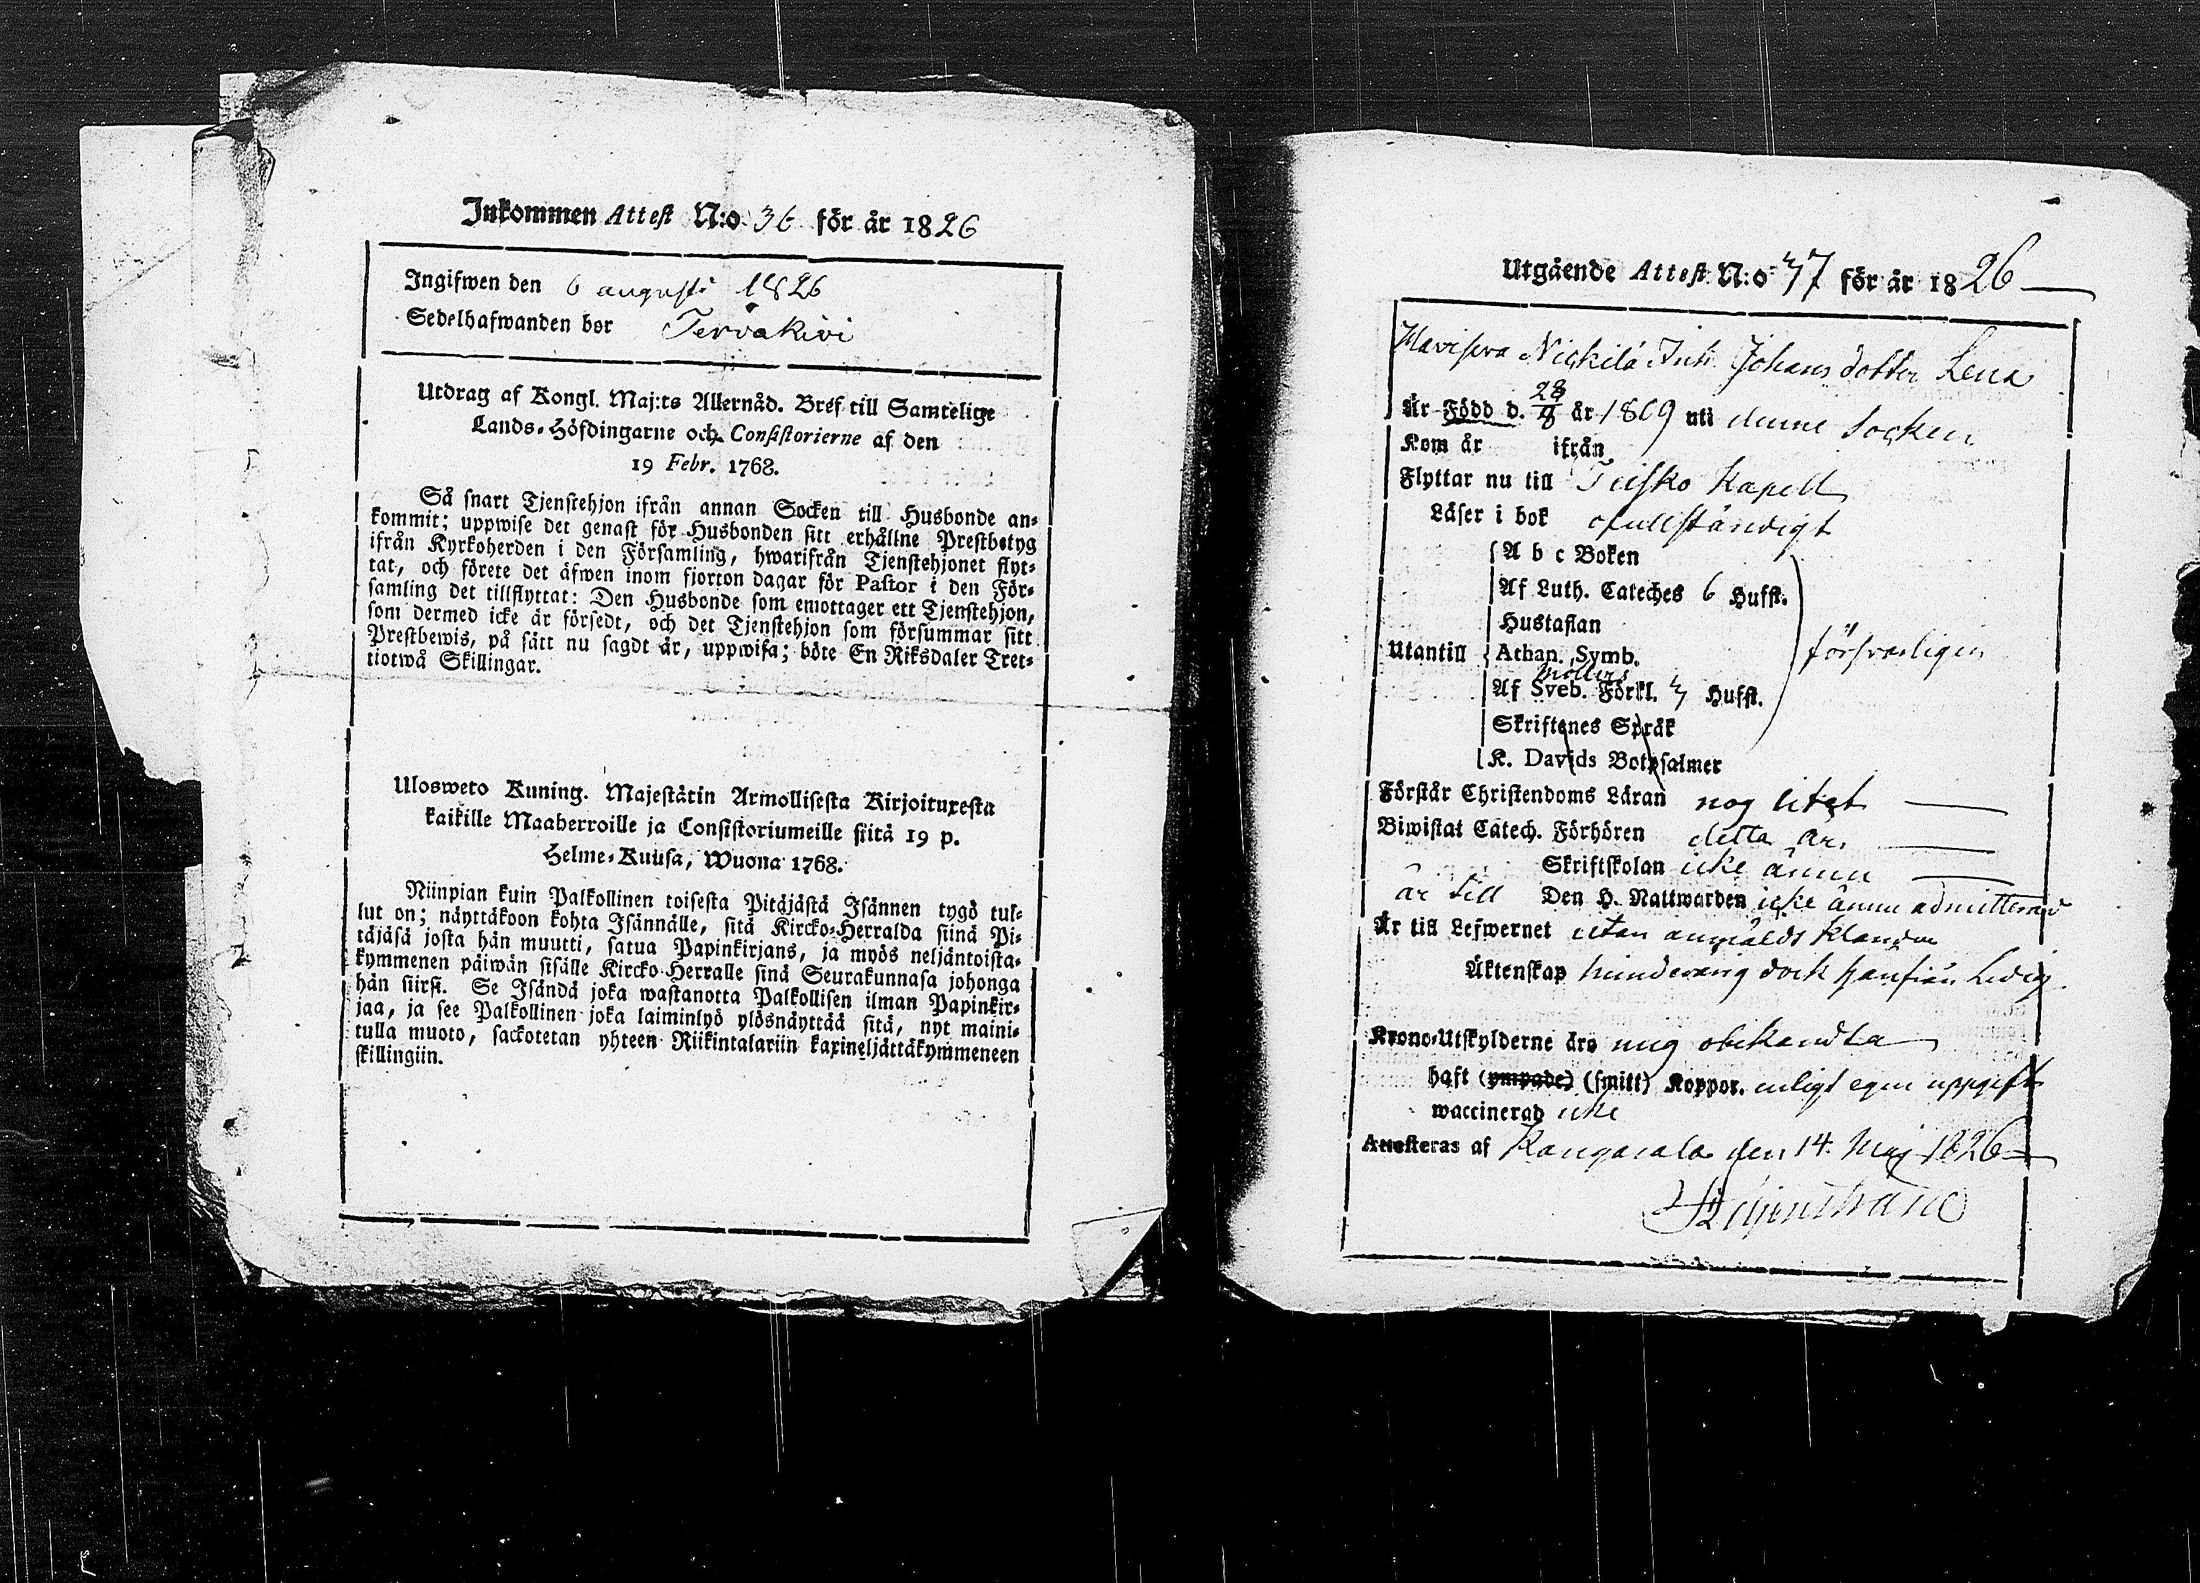 Inkommen Attest N:o 36 för år 1826
Ingifwen den 6 augusti 1826
Sedelhafwanden bor Tervakivi
Utdrag af Kongl. Maj:ts Allernåd. Bref till Samtelige
Lands-Höfdingarne och Consistorierne af den
19 Febr. 1768.
Så snart Tjenstehjon ifrån annan Socken till Husbonde an-
kommit; uppwise det genast för Husbonden sitt erhållne Prestbetyg
ifrån Kyrkoherden i den Församling, hwarifrån Tjenstehjonet flyt-
tat, och förete det äfwen inom fjorton dagar för Pastor i den För-
samling det tillflyttat: Den Husbonde som emottager ett Tjenstehjon,
som dermed icke är försedt, och det Tjenstehjon som försummar sitt
Prestbewis, på sätt nu sagdt är, uppwisa; böte En Riksdaler Tret-
tiotwå Skillingar.
Ulosweto Kuning. Majestätin Armollisesta Kirjoituxesta
kaikille Maaherroille ja Consistoriumeille siitä 19 p.
Helme-Kuusa, Wuona 1768.
Niinpian kuin Palkollinen toisesta Pitäjästä Isännen tygö tul-
lut on; näyttäkoon kohta Isännälle, sitä Kircko-Herralda siinä Pi-
täjäsä josta hän muutti, satua Papinkirjans, ja myös neljäntoista-
kymmenen päiwän sisälle Kircko-Herralle sinä Seurakunnasa johonga
hän siirsi. Se Isändä joka wastanotta Palkollisen ilman Papinkir-
jaa, ja see Palkollinen joka laiminlyö ylösnäyttää sitä, nyt maini-
tulla muoto, sackotetan yhteen Riikintalariin kaxineljättäkymmeneen
skillingiin.
Utgående Attest N:o 77 för år 1826
Haviseva Nickilä Inh. Johansdotter Lena
Är Född d. 28/8 år 1809 uti denne Socken
Kom år ifrån
Flyttar nu till Teisko Kapell
Läser i bok ofullständigt
A b c Boken
Af Luth. Cateches 6 Hufst.
Hustaflan
Utantill Athan. Symb. försvarligen
Möllers
Af Sveb. Förkl. 7 Hufst.
Skriftenes Språk
K. Davids Botpsalmer
Förstår Christendoms Läran nog litet
Biwistat Catech. Förhören detta år.
Skriftskolan icke ännu
är till Den H. Nattwarden icke ännu admitterad
Är till Lefwernet utan anmäldt klander
Äktenskap minderårig dock härifrån ledig.
Krono-Utskylderne äro mig obekandta
haft (ympade) (smitt) Koppor. enligt egen uppgift
waccinerad icke
Attesteras af Kangasala den 14. Maj 1826